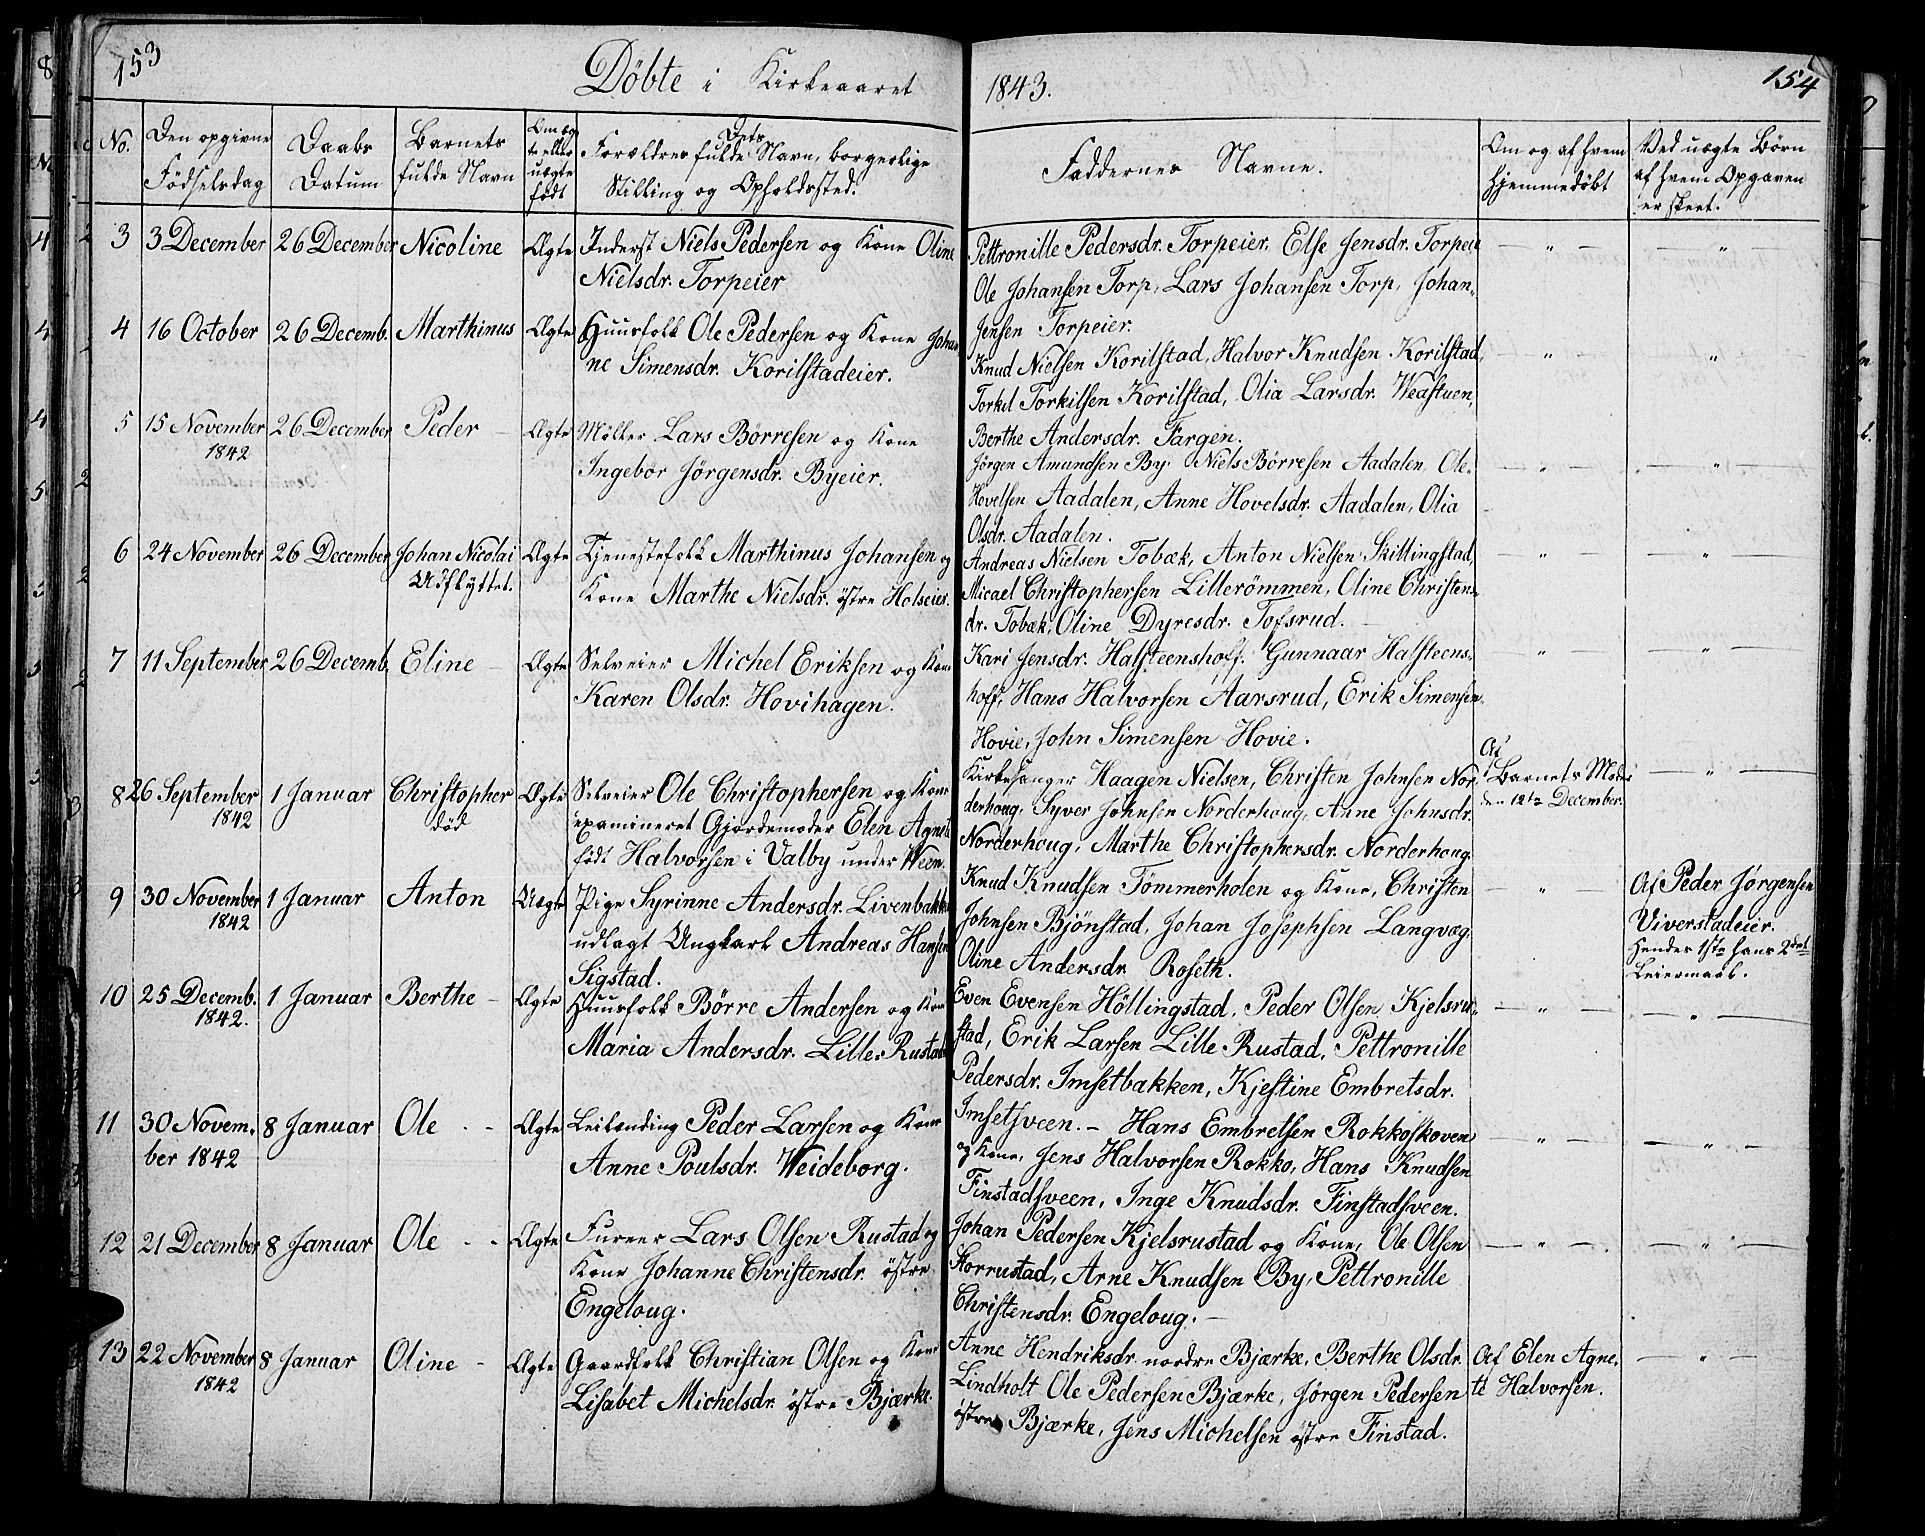 153
Döbte i Kirkeaaret
1843.
154
No.
Den opgivne
Födselsdag
Daabs
Datum
Barnets
fulde Navn
Om æg
te eller
uægte
födt
Dets
Forældres fulde Navn, borgerlige
Stilling og Opholdssted.
Faddernes Navne.
Om og af hvem
hjemmedöbt
Ved uægte Börn
af hvem Opgaven
er skeet.
3 3 December 26 December Nicoline Ægte Inderst Niels Pedersen og Kone Oline
Nielsdr. Torpeier
Pettronille Pedersdr. Torpeier. Else Jensdr. Torpeie
Ole Johansen Torp, Lars Johansen Torp, Johan
Jensen Torpeier.
4 16 October 26 Decemb. Marthinus Ægte Huusfolk Ole Pedersen og Kone Johan
ne Simensdr. Korilstadeier.
Knud Nielsen Korilstad, Halvor Knudsen Korilstad,
Torkel Torkilsen Korilstad, Olia Larsdr. Weastuen,
Berthe Andersdr. Fargen.
5 15 November 26 December Peder Ægte Möller Lars Börresen og Kone
1842
Ingebor Jörgensdr. Byeier.
Jörgen Amundsen By. Niels Börresen Aadalen, Ole
Hovelsen Aadalen, Anne Hovelsdr. Aadalen, Olia
Olsdr. Aadalen.
6 24 November 26 December Johan Nicolai Ægte Tjenestefolk Marthinus Johansen og
Udflyttet.
Kone Marthe Nielsdr. östre Holseier.
Andreas Nielsen Tobæk, Anton Nielsen Skillingstad,
Micael Christophersen Lillerömmen, Oline Christens
dr. Tobæk, Oline Dyresdr. Tofsrud.
7 11 September 26 Decemb. Eline Ægte Selveier Michel Eriksen og Kone
Karen Olsdr. Hovihagen.
Kari Jensdr. Halsteenshoff. Gunnaar Halsteens
hoff, Hans Halvorsen Aarsrud, Erik Simensen
Hovie, John Simensen Hovie.
8 26 September 1 Januar Christopher Ægte Selveier Ole Christophersen og Kone
1842
död
examineret Gjordemoder Elen Agnete
födt Halvorsen i Valby under Ween.
Kirkesanger Haagen Nielsen, Christen Johnsen Nor
derhoug, Syver Johnsen Norderhoug, Anne Johnsdr.
Norderhoug, Marthe Christophersdr. Norderhoug.
Af
Barnets Moder
den 12te December.
9 30 November 1 Januar Anton Uægte Pige Syrinne Andersdr. Livenbakke
1842
udlagt Ungkarl Andreas Hansen
Sigstad.
Knud Knudsen Tömmerholen og Kone, Christen
Johnsen Bjönstad, Johan Josephsen Langvæg.
Oline Andersdr. Roseth.
Af Peder Jörgensen
Viverstadeier.
Hendes 1ste hans 2det
Leiermaal.
10 25 Decemb. 1 Januar Berthe Ægte Huusfolk Börre Andersen og Kone
1842.
Maria Andersdr. Lille Rustad
Even Evensen Höllingstad, Peder Olsen Kjelsru
stad, Erik Larsen Lille Rustad, Pettronille
Pedersdr. Imsetbakken, Kjestine Embretsdr.
Imsetsveen.
11 30 Novem- 8 Januar Ole Ægte Leilænding Peder Larsen og Kone
ber 1842
Anne Poulsdr. Weideborg.
Hans Embretsen Rokkoskoven
og Kone, Jens Halvorsen Rokko, Hans Knudsen
Finstadsveen, Inge Knudsdr. Finstadsveen.
12 21 December 8 Januar Ole Ægte Fureer Lars Olsen Rustad og
Kone Johanne Christensdr. östre
Engeloug.
Johan Pedersen Kjelsrustad og Kone, Ole Olsen
Storrustad, Arne Knudsen By, Pettronille
Christensdr. Engeloug.
13 22 November 8 Januar Oline Ægte Gaardfolk Christian Olsen og Kone
1842
Lisabet Michelsdr. östre Bjærke
Anne Hendriksdr. nordre Bjærke, Berthe Olsdr.
Lindholt Ole Pedersen Bjærke, Jörgen Pedersen
östre Bjærke, Jens Michelsen östre Finstad.
Af Elen Agne-
te Halvorsen.